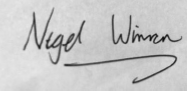 Nigel Winnen